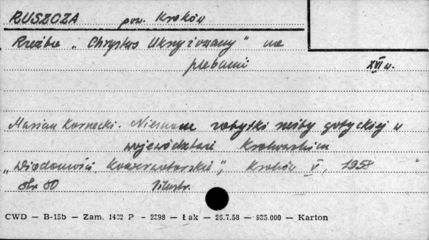 RUSZCZA pow. Kraków
Rzeźba „Chrystus Ukrzyżowany" na
plebanii XVI w.
Marian Kornecki. Nieznane zabytki rzeźby gotyckiej w
województwie Krakowskim
„Wiadomości Konserwatorskie", Kraków V, 1958
Str. 50 Ilustr.
CWD — B-15b — Zam. 1402 P - 2298 — Łak — 28.7.56 — 535.000 — Karton